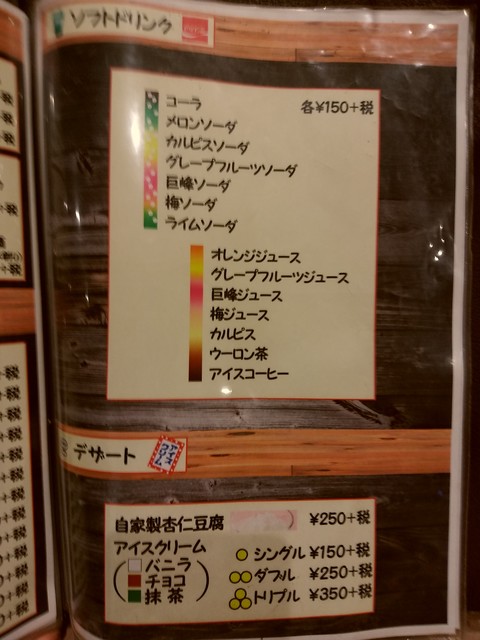 ソフトドリンク
コーラ 各¥150+税
メロンソーダ
カルピスソーダ
グレープフルーツソーダ
巨峰ソーダ
梅ソーダ
ライムソーダ
オレンジジュース
グレープフルーツジュース
巨峰ジュース
梅ジュース
カルピス
ウーロン茶
アイスコーヒー
デザート
自家製杏仁豆腐 ¥250+税
アイスクリーム
シングル ¥150+税
バニラ
ダブル ¥250+税
チョコ
トリプル ¥350+税
抹茶